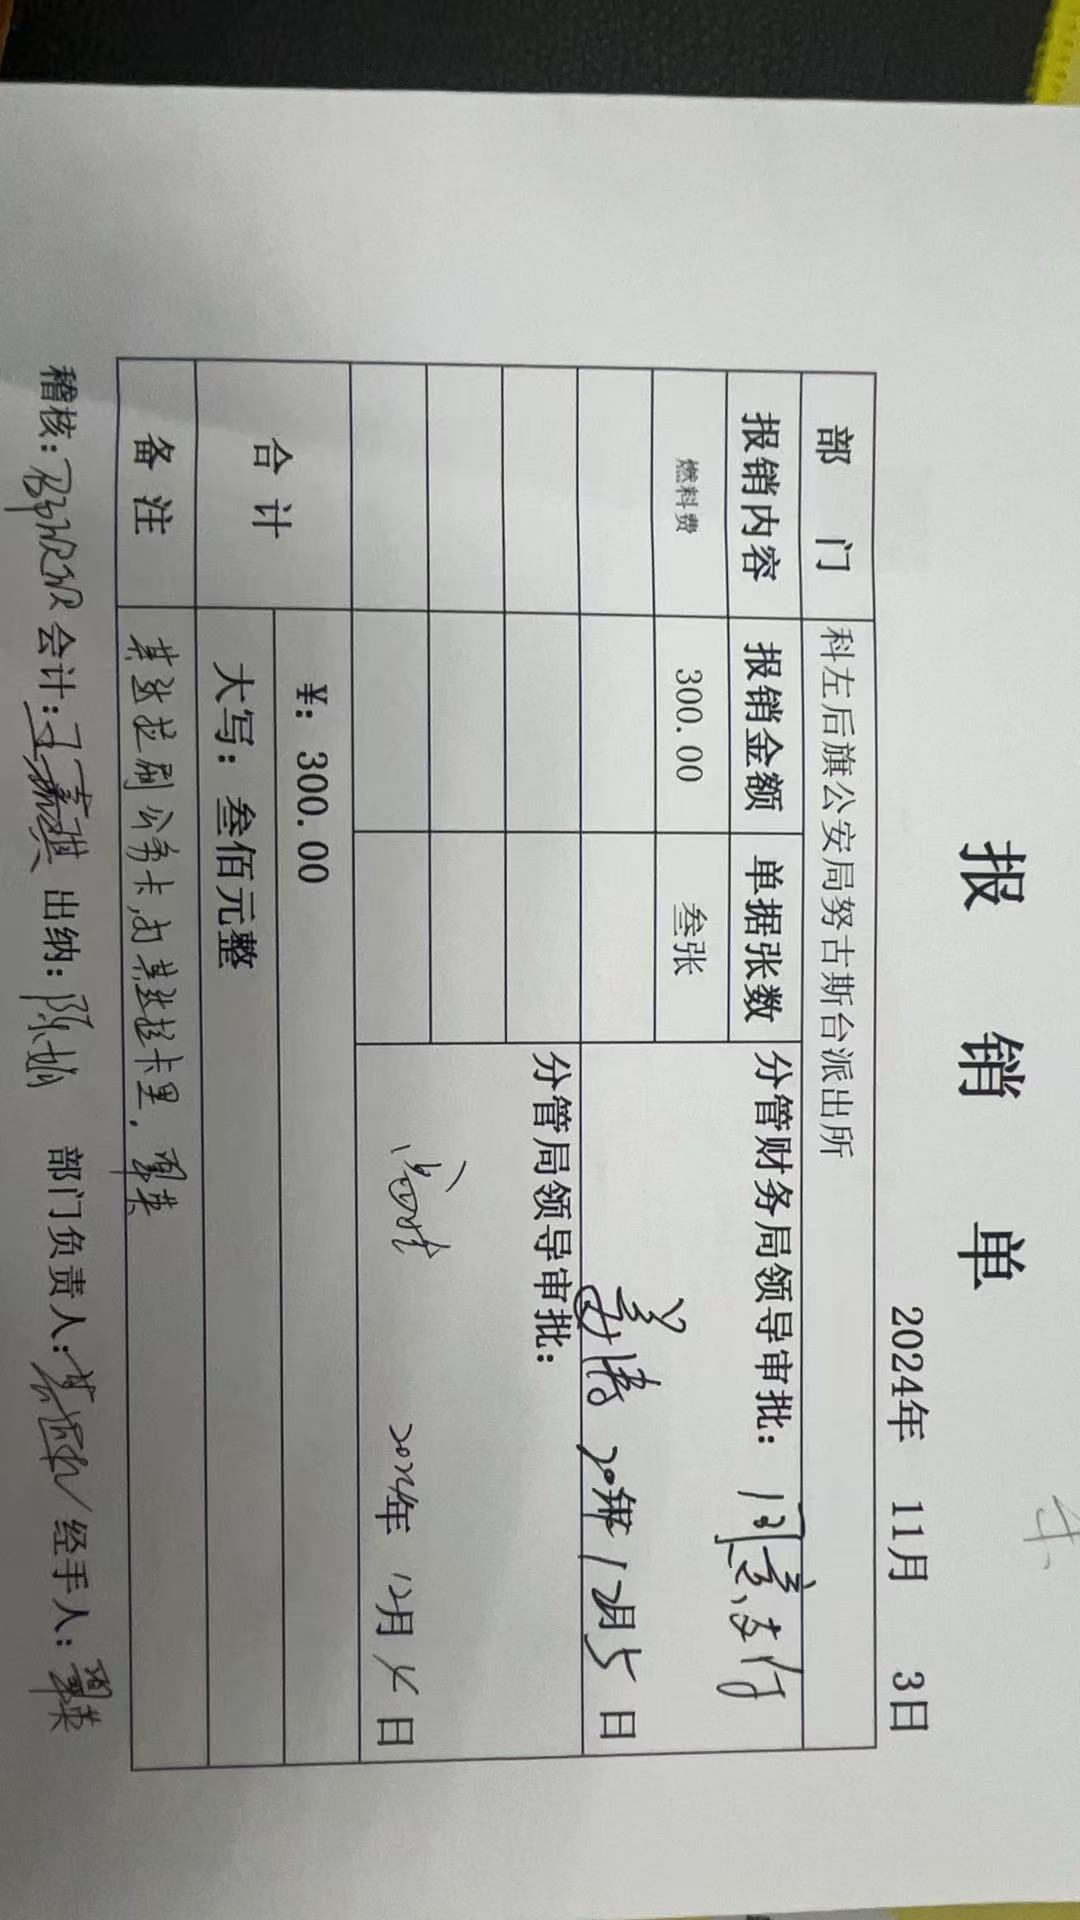 报 销 单
2024年 11月 3日
部 门 科左后旗公安局努古斯台派出所
报销内容 报销金额 单据张数 分管财务局领导审批： 同意支付
燃料费 300.00 叁张
12月5日
分管局领导审批：
2024年 12月 4日
合 计 ¥：300.00
大写：叁佰元整
备 注 刷公务卡，卡里.
稽核： 会计： 出纳： 陈 部门负责人： 经手人：